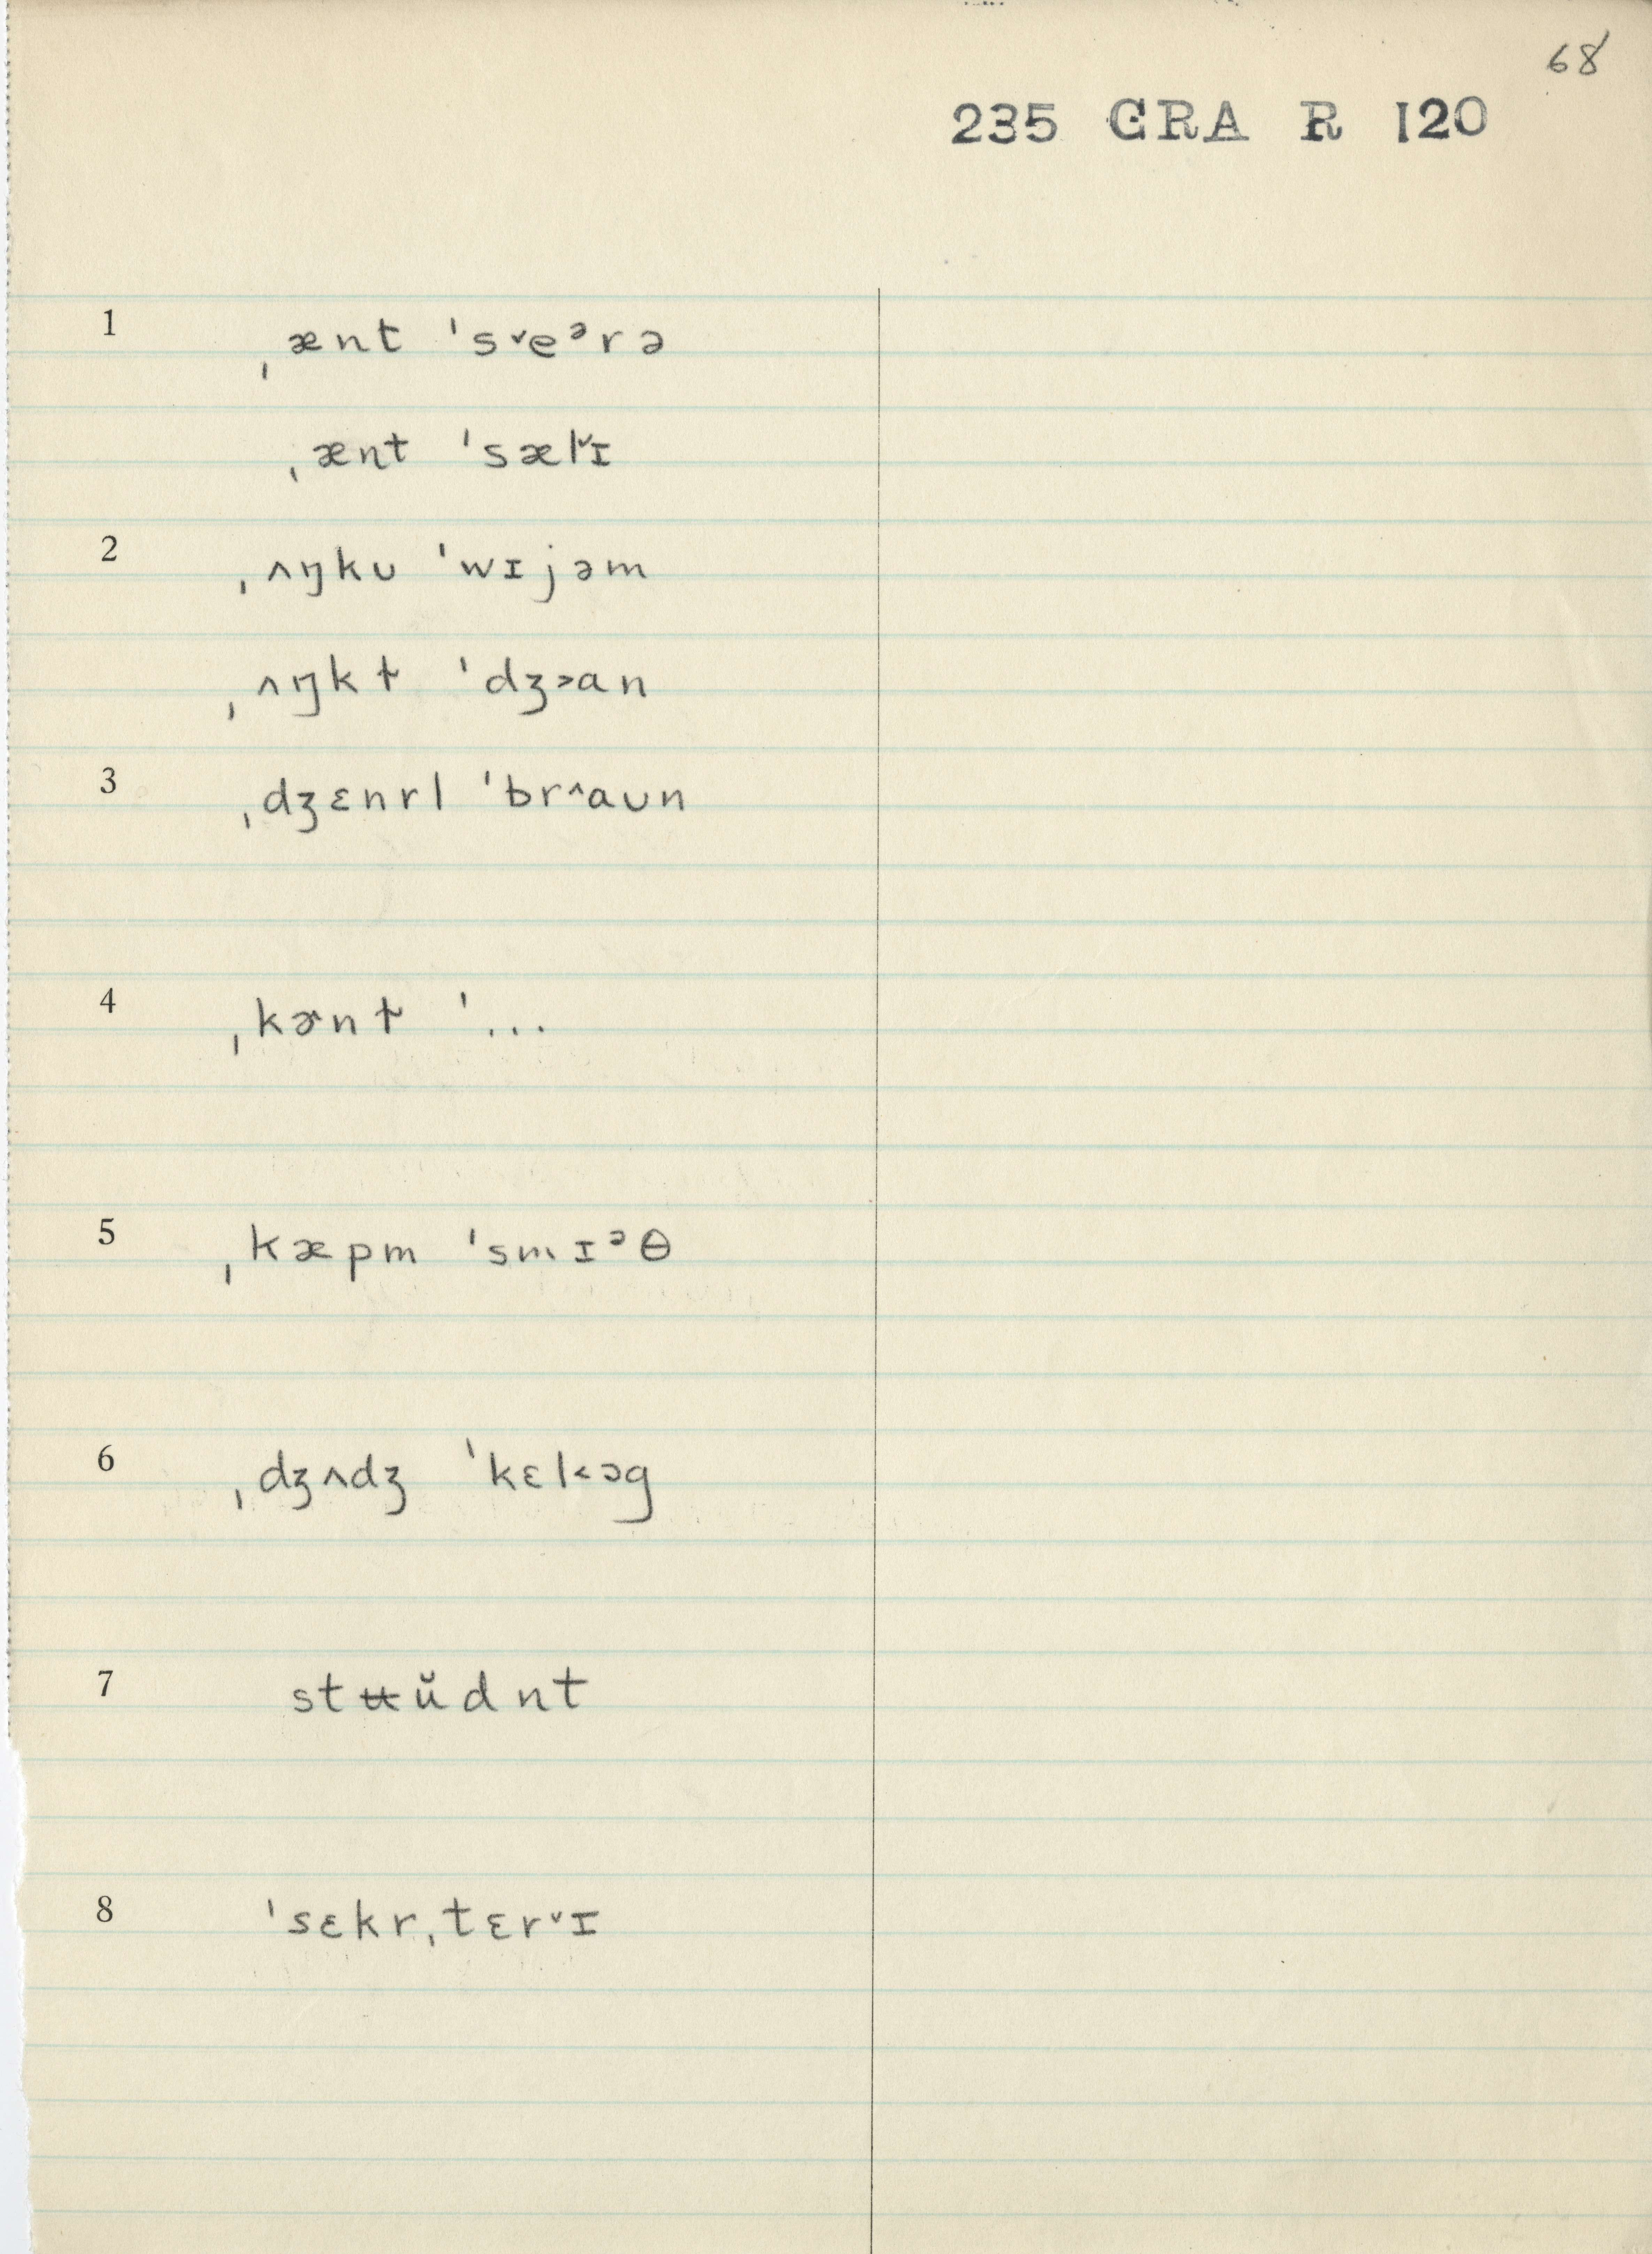 68
235 GRA R 120
1 ˌænt ˈs˅eᵊrə
ˌænt ˈsæl˅ɪ
2 ˌʌŋkʊ ˈwɪjəm
ˌʌŋkɫ ˈdʒ˃an
3 ˌdʒɛnrl ˈbr˄aʊn
4 ˌkɚnɫ ˈ...
5 ˌkæpm ˈsmɪᵊθ
6 ˌdʒʌdʒ ˈkɛl˂ɔg
7 stʉŭdnt
8 ˈsɛkrˌtɛr˅ɪ